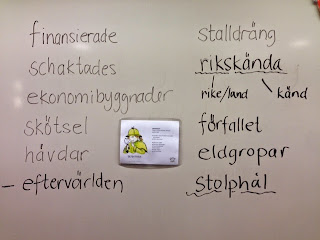 finansierade
schaktades
ekonomibyggnader
skötsel
hävdar
- eftervärlden
stalldräng
rikskända
rike/land \ känd
förfallet
eldgropar
stolphål